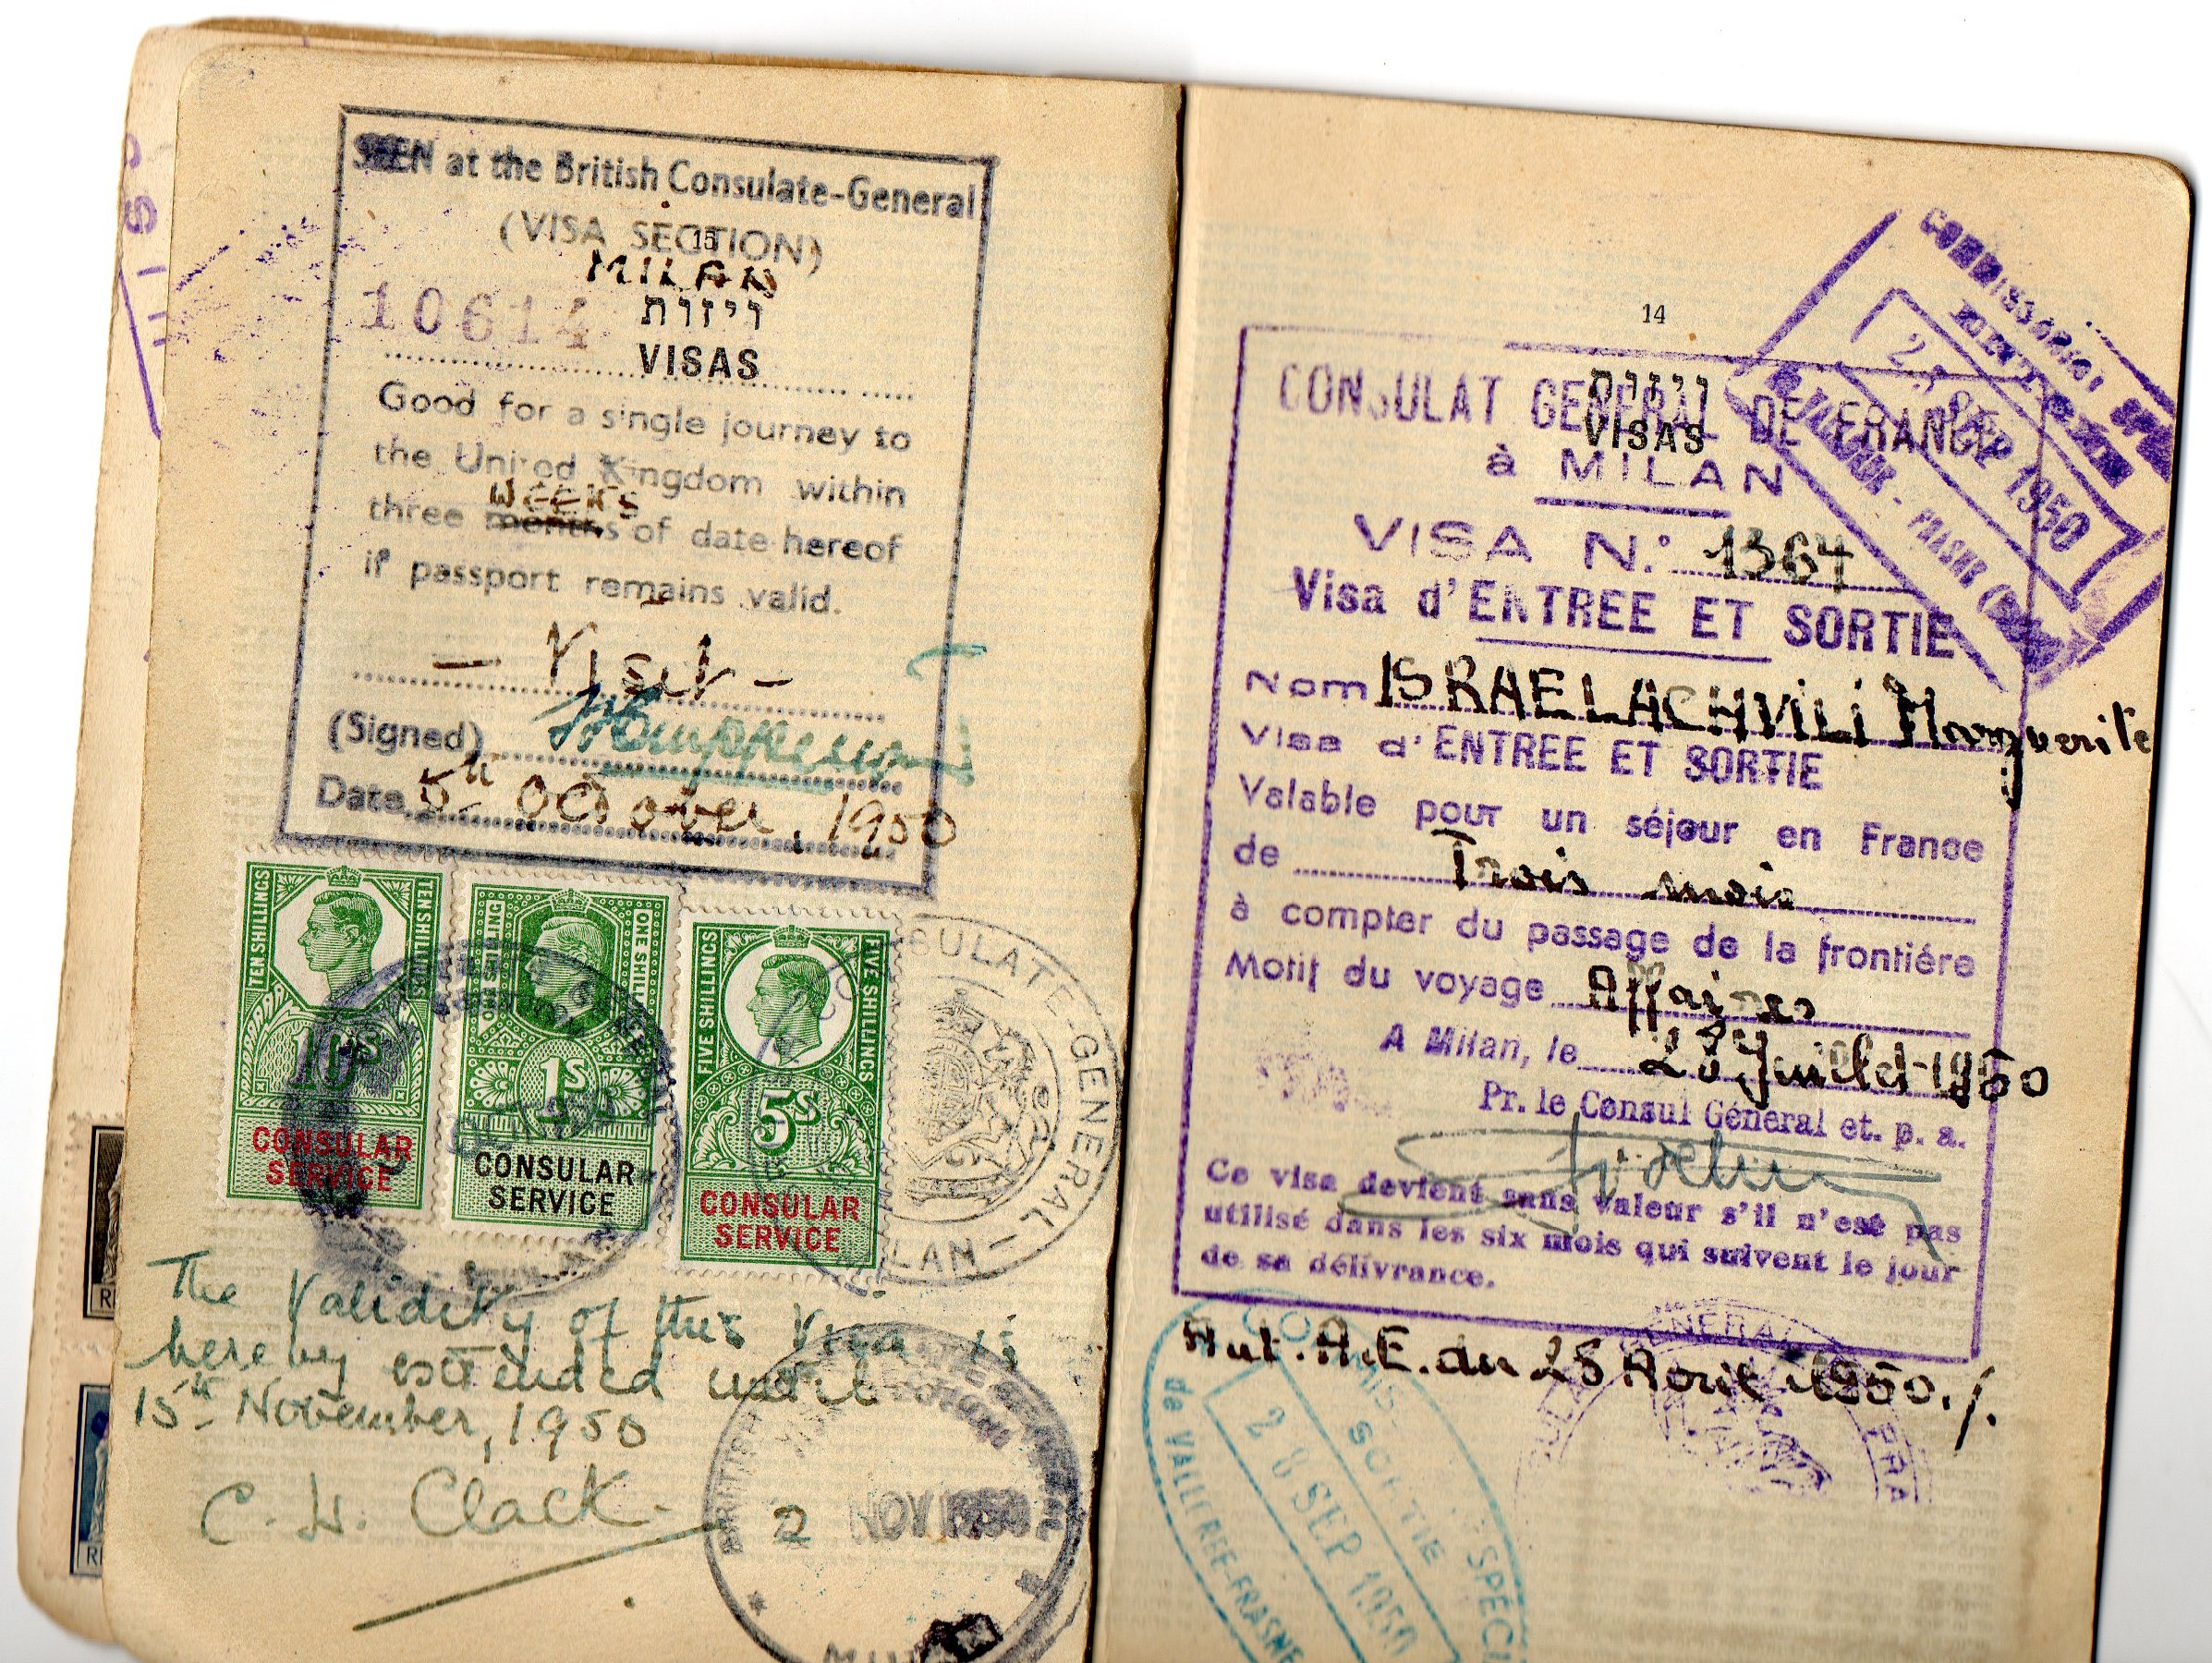 SEEN at the British Consulate-General
(VISA SECTION)
15
MILAN
10614
ויזות
VISAS
Good for a single journey to
the United Kingdom within
three months weeks of date hereof
if passport remains valid.
- Visit -
(Signed)
Date 5th October, 1950
TEN SHILLINGS
TEN SHILLINGS
10S
CONSULAR
SERVICE
ONE SHILLING
ONE SHILLING
1S
CONSULAR
SERVICE
FIVE SHILLINGS
FIVE SHILLINGS
5S
CONSULAR
SERVICE
CONSULATE-GENERAL
MILAN
The Validity of this Visa is
hereby extended until
15th November, 1950
C. W. Clack
2 NOV 1950
14
ויזות
VISAS
CONSULAT GENERAL DE FRANCE
à MILAN
VISA N.° 1364
Visa d'ENTREE ET SORTIE
Nom ISRAELACHVILI Marguerite
Visa d'ENTREE ET SORTIE
Valable pour un séjour en France
de Trois mois
à compter du passage de la frontiére
Motif du voyage Affaires
A Milan, le 28 Juillet 1950
Pr. le Consul Général et. p. a.
Ce visa devient sans valeur s'il n'est pas
utilisé dans les six mois qui suivent le jour
de sa délivrance.
Aut. A.E. du 25 Avril 1950./.
SEP 1950
SORTIE
28 SEP 1950
de VALLORBE-FRASNE